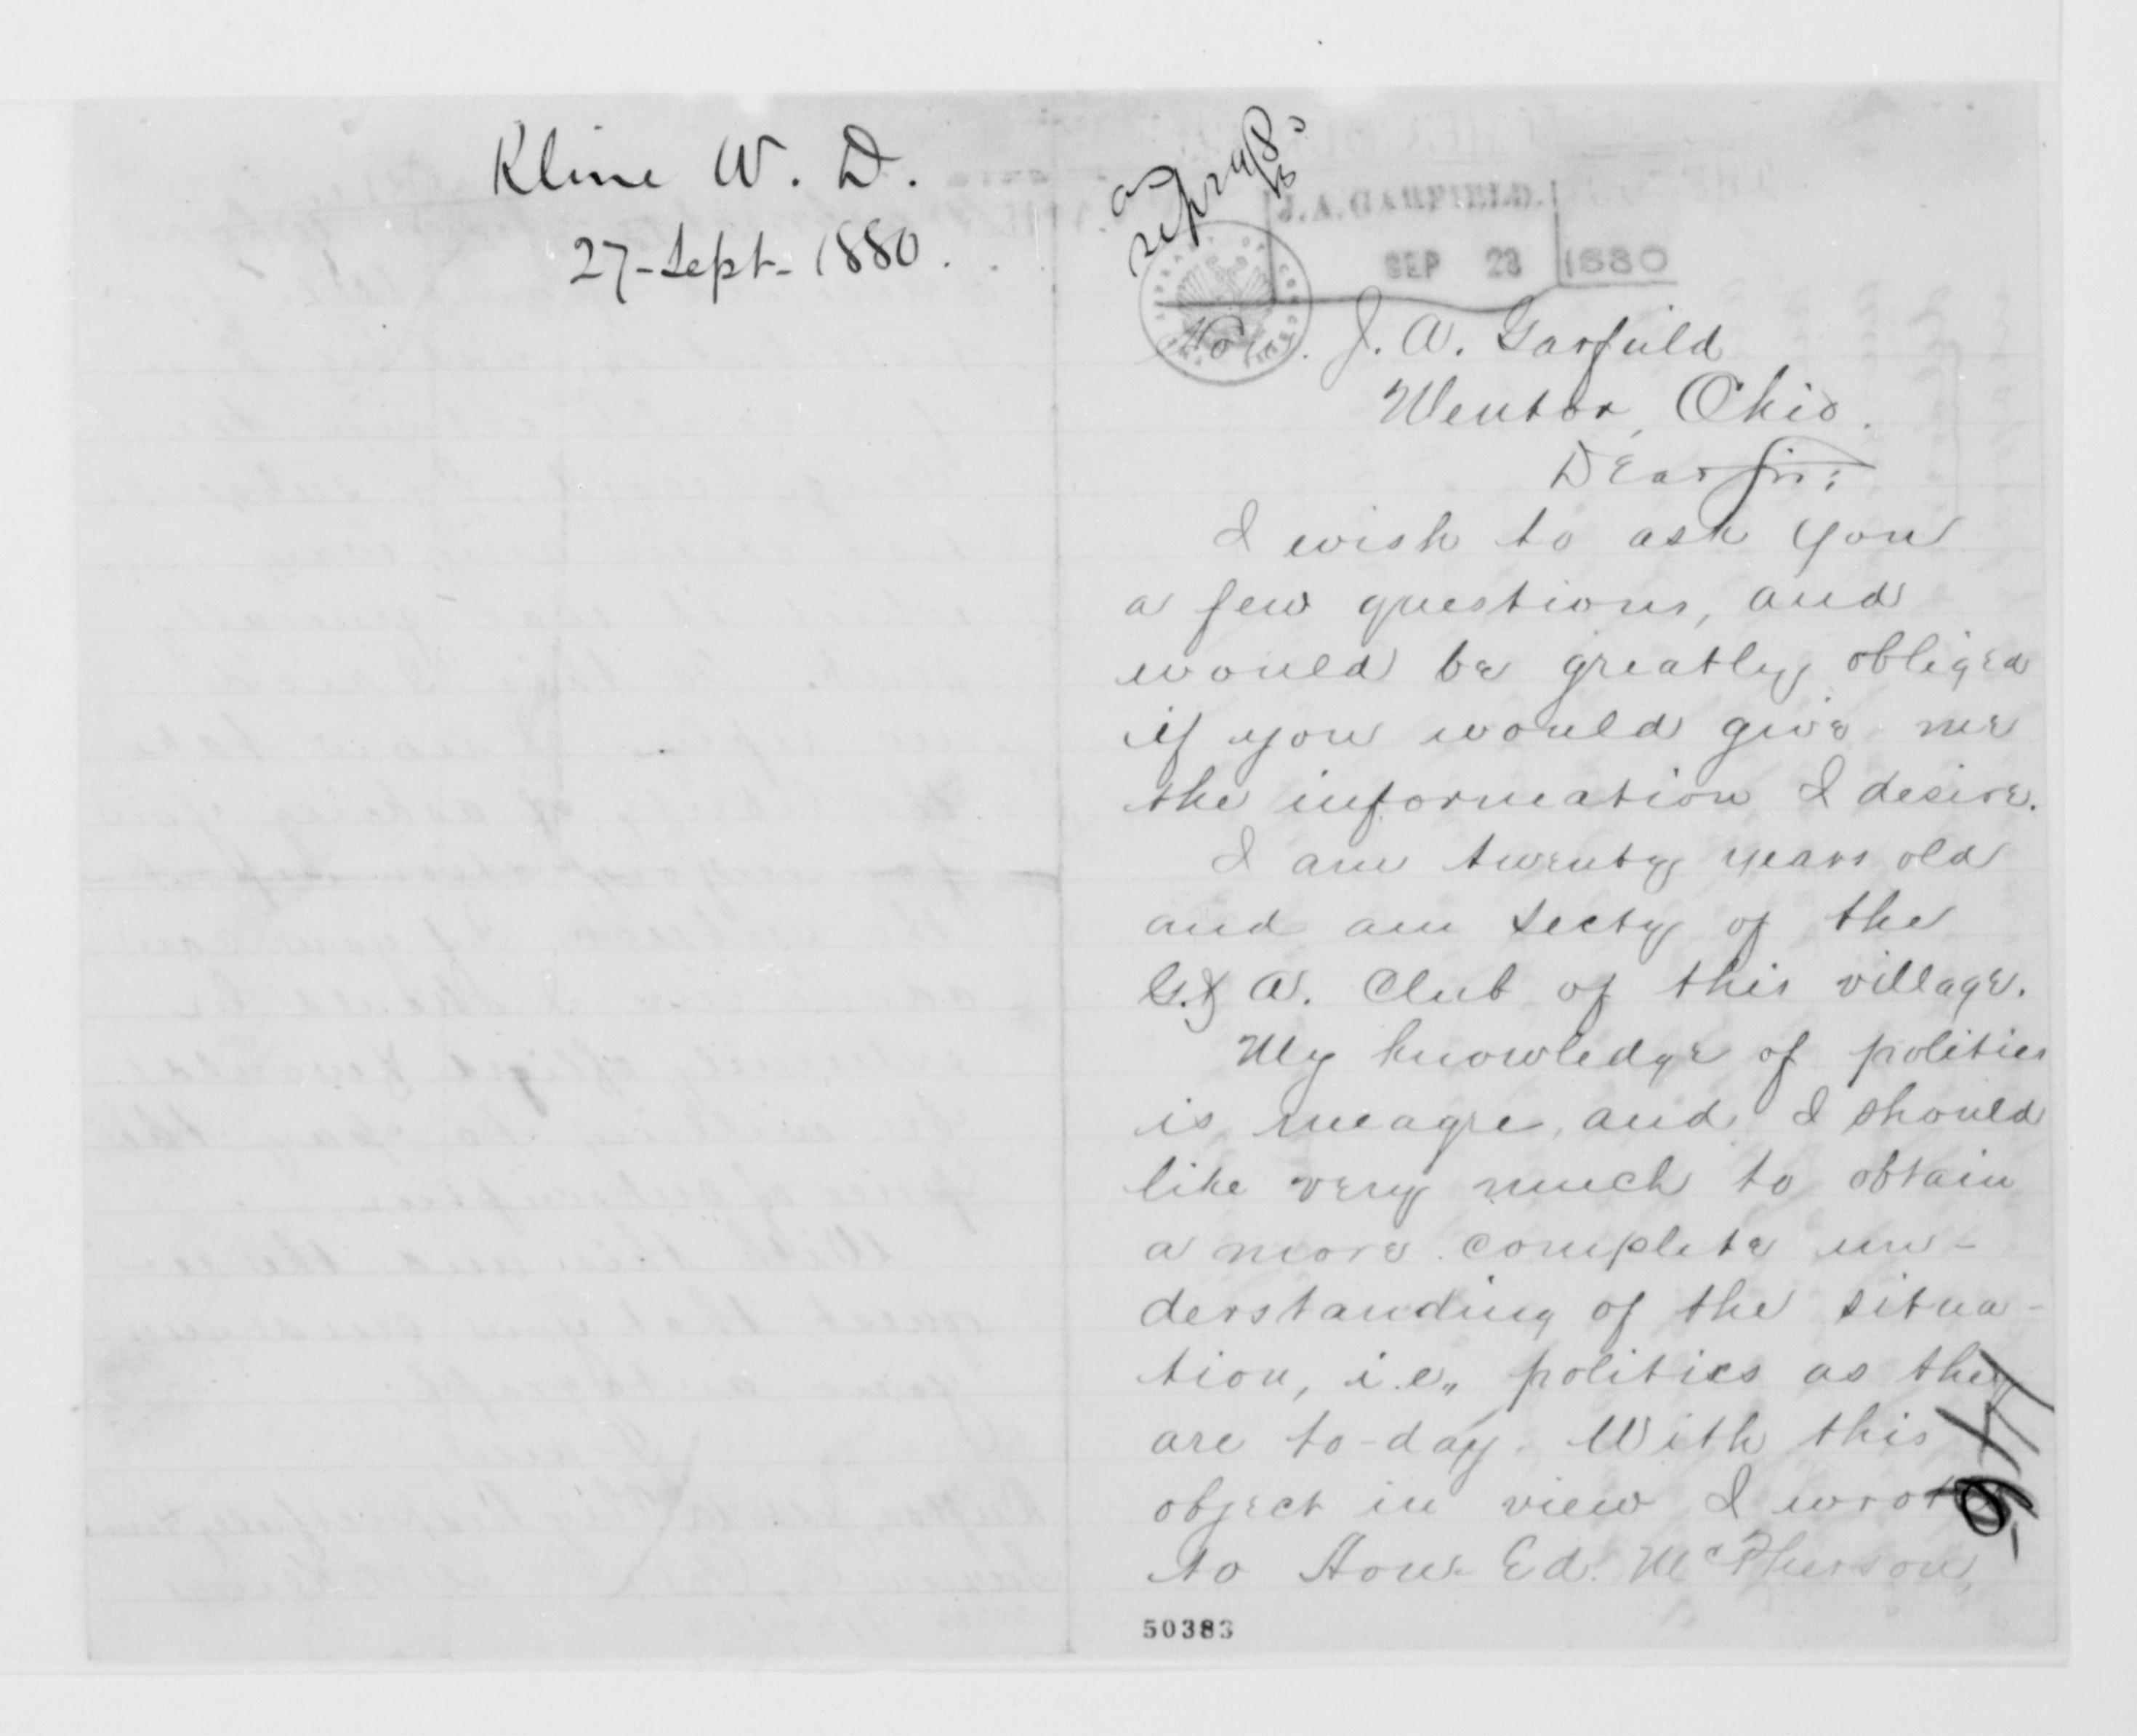 Kline W. D.
27-Sept-1880.
J. A. GARFIELD.
SEP 28 1880
Hon. J. A. Garfield
Mentor, Ohio.
Dear Sir:
I wish to ask you
a few questions, and
would be greatly obliged
if you would give me
the information I desire.
I am twenty years old
and am Secty of the
G. & A. Club of this village.
My knowledge of politics
is meagre, and I should
like very much to obtain
a more complete un-
derstanding of the situa-
tion, i.e., politics as they
are to-day. With this
object in view I wrote
to Hon. Ed. McPherson,
50383